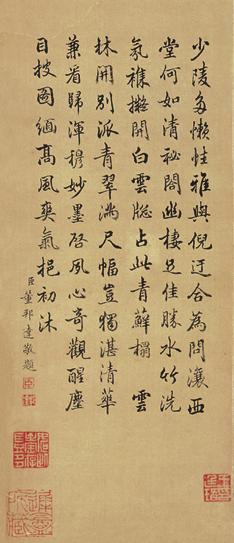 少陵多懶性雅與倪迂合為問瀼西
堂何如清祕閣幽棲足佳勝水竹洗
氛雜擬開白雲牕占此青蘚榻 雲
林開別派青翠滿尺幅豈獨湛清華
兼看歸渾穆妙墨啓夙心奇觀醒塵
目披圖緬高風爽氣挹初沐
臣董邦達敬題